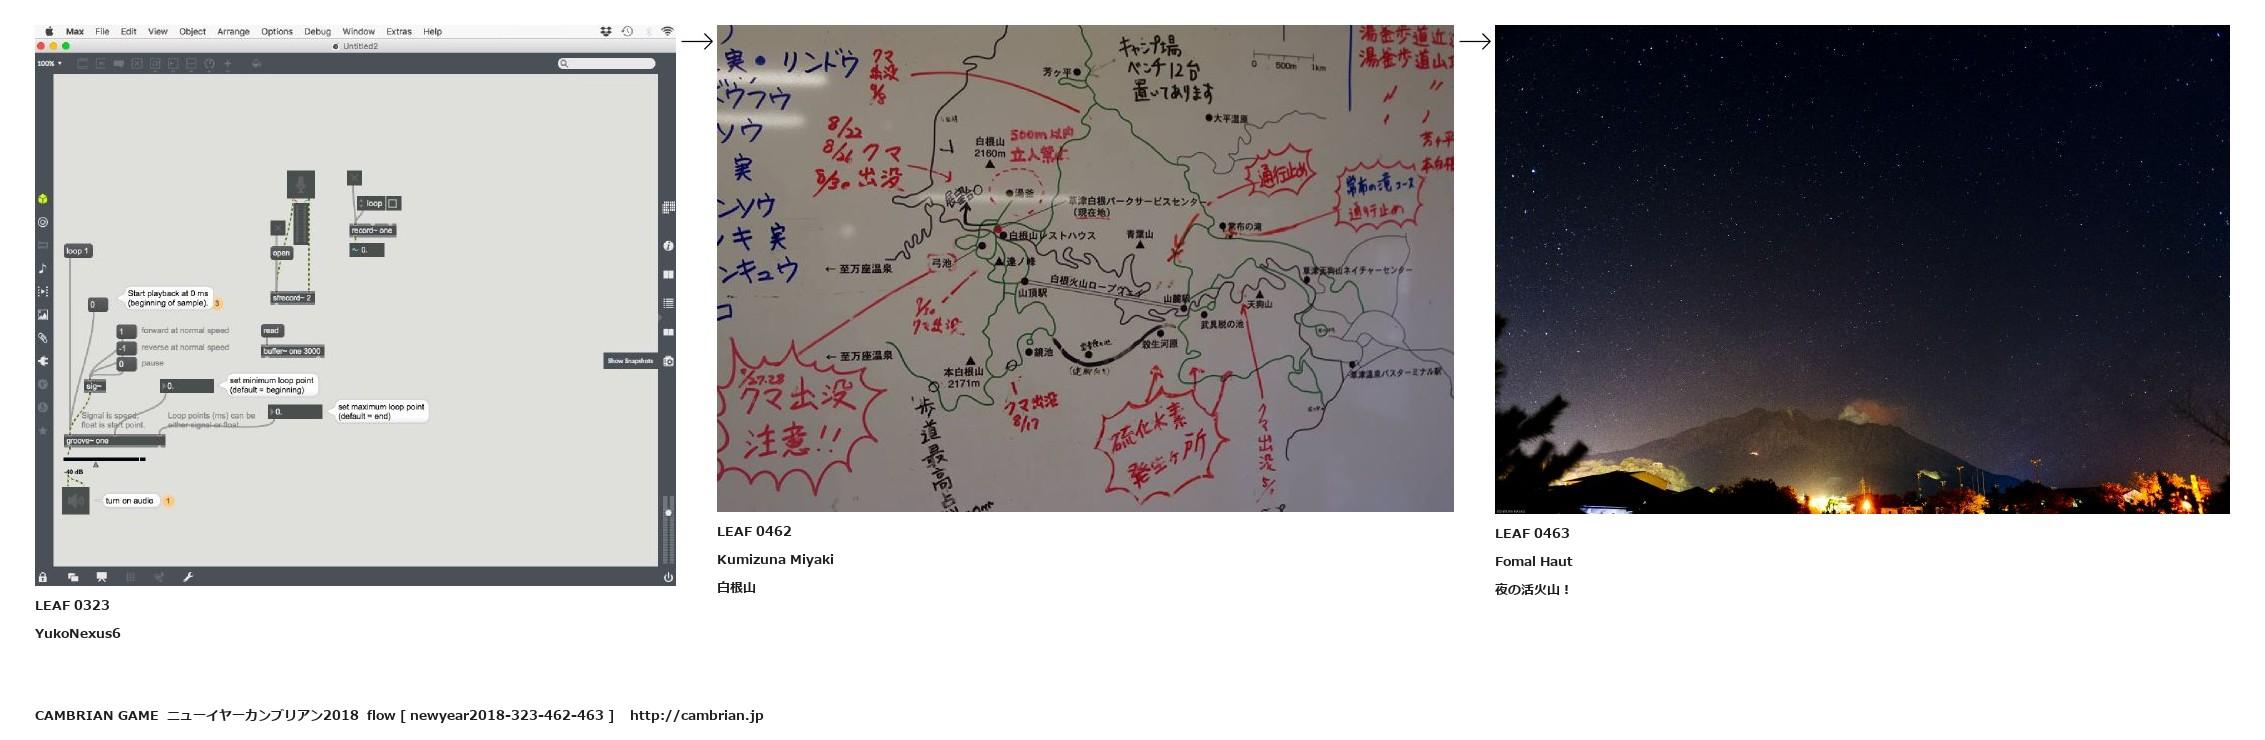 Max File Edit View Object Arrange Options Debug Window Extras Help
Untitled2
100%
loop
record~ one
0.
loop 1
open
sfrecord~ 2
0
Start playback at 0 ms
(beginning of sample).
3
1
forward at normal speed
-1
reverse at normal speed
0
pause
read
buffer~ one 3000
Show Snapshots
sig~
0.
set minimum loop point
(default = beginning)
Signal is speed;
float is start point.
Loop points (ms) can be
either signal or float
0.
set maximum loop point
(default = end)
groove~ one
-40 dB
turn on audio
1
LEAF 0323
YukoNexus6
実・リンドウ
クマ
出没
キャンプ場
ベンチ12台
置いてあります
芳ヶ平
0 500m 1km
湯釜歩道近
湯釜歩道山
ウフウ
ソウ
実
ンソウ
キ実
ンキュウ
コ
8/22
8/26 クマ
8/30 出没
白根山
2160m
500m以内
立入禁止
大平湿原
通行止め
常布の滝コース
通行止め
芳ヶ平
本白根
湯釜
草津白根パークサービスセンター
(現在地)
白根山レストハウス
青葉山
常布の滝
← 至万座温泉
弓池
逢ノ峰
草津天狗山ネイチャーセンター
山頂駅
白根火山ロープウェイ
山麓駅
天狗山
武具脱の池
クマ出没
殺生河原
鏡池
← 至万座温泉
本白根山
2171m
草津温泉バスターミナル駅
クマ出没
注意!!
クマ出没
8/17
歩道最高点
硫化水素
発生ヶ所
クマ出没
LEAF 0462
Kumizuna Miyaki
白根山
LEAF 0463
Fomal Haut
夜の活火山！
CAMBRIAN GAME ニューイヤーカンブリアン2018 flow [ newyear2018-323-462-463 ] http://cambrian.jp